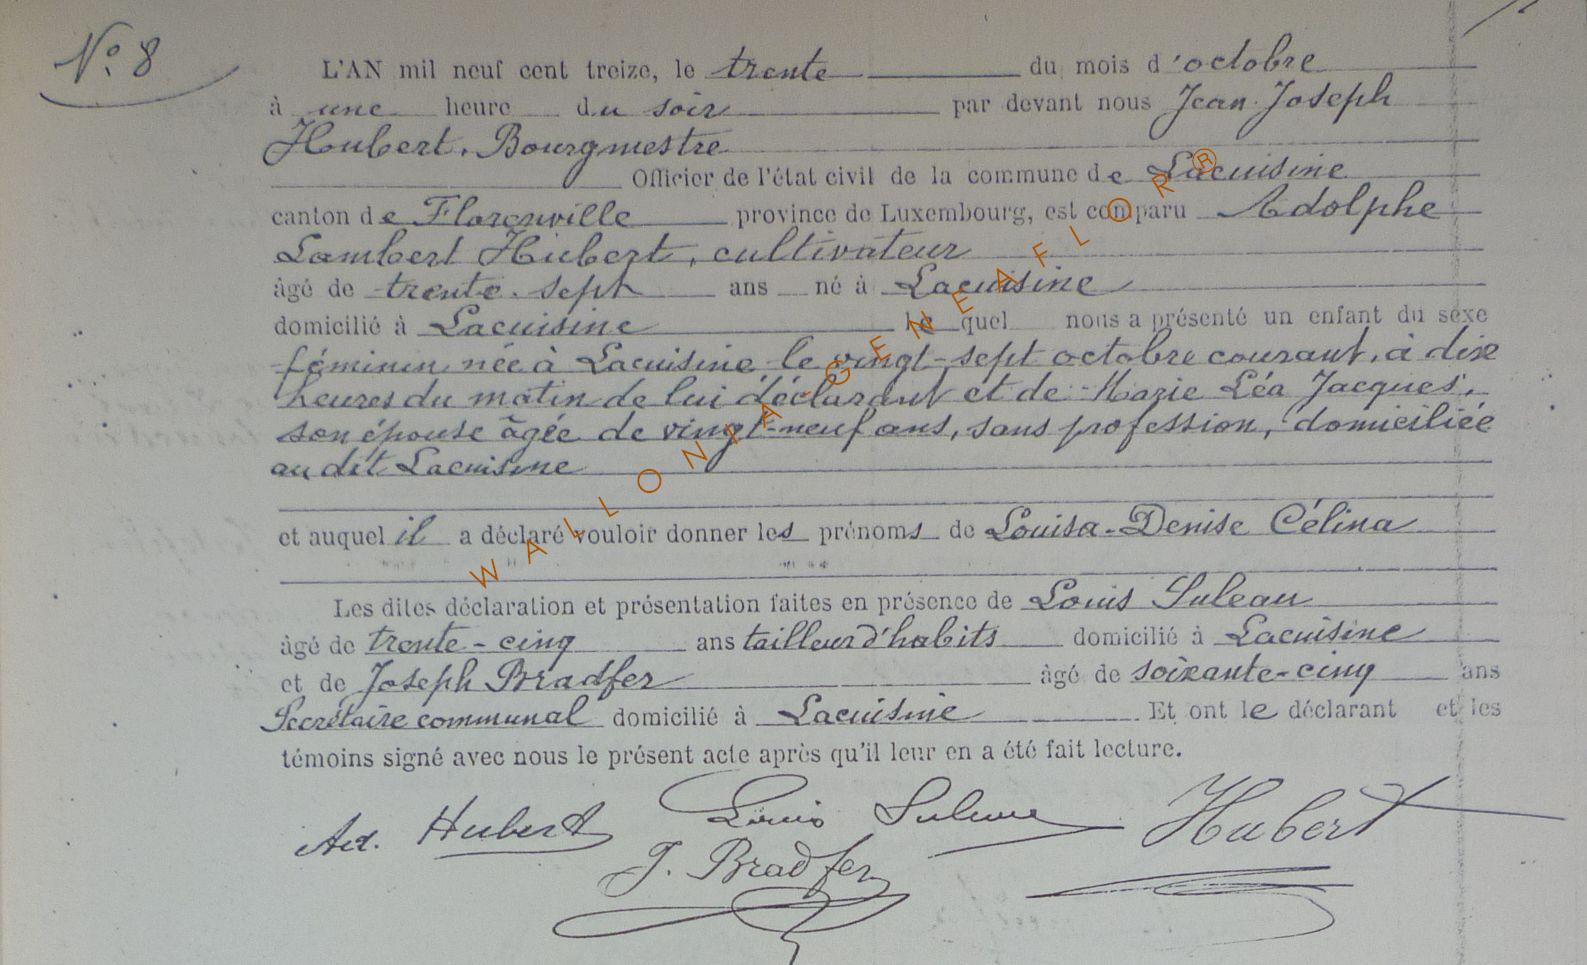 N° 8
L'AN mil neuf cent treize, le trente du mois d'octobre
à une heure du soir par devant nous Jean Joseph
Hubert, Bourgmestre
Officier de l'état civil de la commune de Lacuisine
canton de Florenville province de Luxembourg, est comparu Adolphe
Lambert Hubert, cultivateur
âgé de trente-sept ans né à Lacuisine
domicilié à Lacuisine lequel nous a présenté un enfant du sexe
féminin née à Lacuisine le vingt-sept octobre courant, à dix
heures du matin de lui déclarant et de Marie Léa Jacques,
son épouse âgée de vingt-neuf ans, sans profession, domiciliée
au dit Lacuisine
et auquel il a déclaré vouloir donner les prénoms de Louisa-Denise Célina
Les dites déclaration et présentation faites en présence de Louis Suleau
âgé de trente-cinq ans tailleur d'habits domicilié à Lacuisine
et de Joseph Bradfer âgé de soixante-cinq ans
Secrétaire communal domicilié à Lacuisine Et ont le déclarant et les
témoins signé avec nous le présent acte après qu'il leur en a été fait lecture.
Ad. Hubert Louis Suleau Hubert
J. Bradfer
WALLONIA-GENEAFLOR®